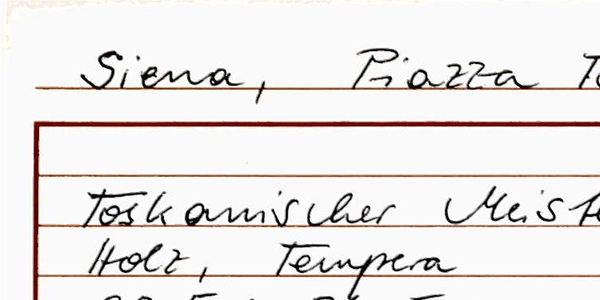 Siena, Piazza
Toskanischer
Holz, Tempera